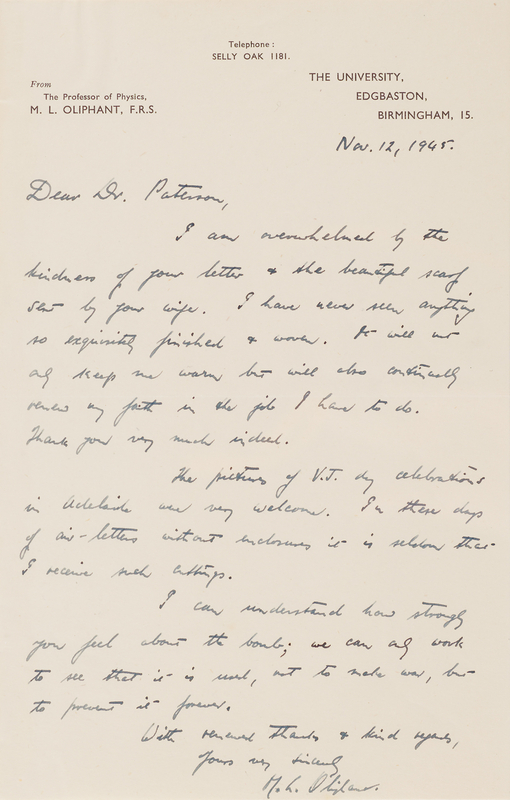 Telephone:
SELLY OAK 1181.
From
The Professor of Physics,
M. L. OLIPHANT, F.R.S.
THE UNIVERSITY,
EDGBASTON,
BIRMINGHAM, 15.
Nov. 12, 1945.
Dear Dr. Paterson,
I am overwhelmed by the
kindness of your letter & the beautiful scarf
sent by your wife. I have never seen anything
so exquisitely finished & woven. It will not
only keep me warm but will also continually
renew my faith in the job I have to do.
Thank you very much indeed.
The pictures of V.J. day celebrations
in Adelaide are very welcome. In these days
of air-letters without enclosures it is seldom that
I receive such cuttings.
I can understand how strongly
you feel about the bomb; we can only work
to see that it is used, not to make war, but
to prevent it forever.
With renewed thanks & kind regards,
Yours very sincerely
M. L. Oliphant.